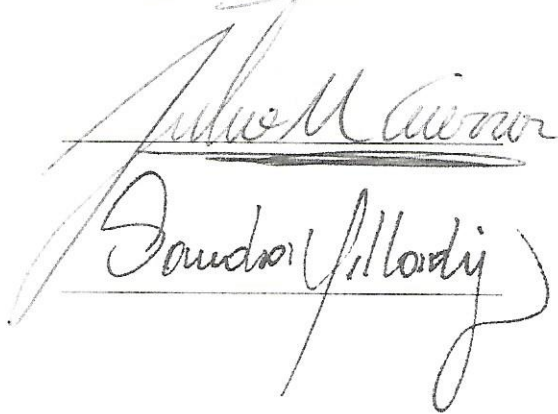 Julio M Guerror
Sandra Villardy